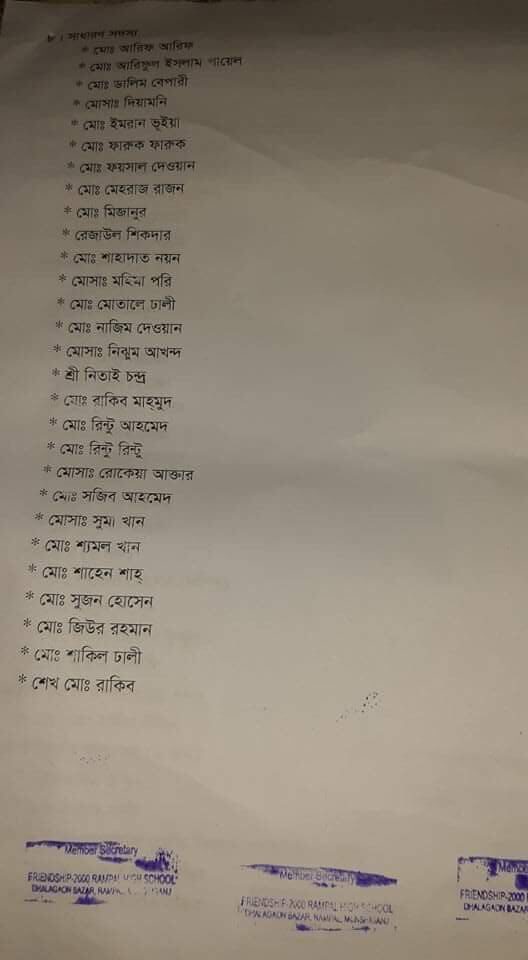 ৮। সাধারণ সদস্য
* মোঃ আরিফ আরিফ
* মোঃ আরিফুল ইসলাম পায়েল
* মোঃ ডালিম বেপারী
* মোসাঃ দিয়ামনি
* মোঃ ইমরান ভূইয়া
* মোঃ ফারুক ফারুক
* মোঃ ফয়সাল দেওয়ান
* মোঃ মেহরাজ রাজন
* মোঃ মিজানুর
* রেজাউল শিকদার
* মোঃ শাহাদাত নয়ন
* মোসাঃ মহিমা পরি
* মোঃ মোতালে ঢালী
* মোঃ নাজিম দেওয়ান
* মোসাঃ নিঝুম আখন্দ
* শ্রী নিতাই চন্দ্র
* মোঃ রাকিব মাহ্মুদ
* মোঃ রিন্টু আহমেদ
* মোঃ রিন্টু রিন্টু
* মোসাঃ রোকেয়া আক্তার
* মোঃ সজিব আহমেদ
* মোসাঃ সুমা খান
* মোঃ শ্যমল খান
* মোঃ শাহেন শাহ্
* মোঃ সুজন হোসেন
* মোঃ জিউর রহমান
* মোঃ শাকিল ঢালী
* শেখ মোঃ রাকিব
Member Secretary
FRIENDSHIP-2000 RAMPAL HIGH SCHOOL
DHALAGAON BAZAR,
Member Secretary
FRIENDSHIP-2000 RAMPAL HIGH SCHOOL
DHALAGAON BAZAR, RAMPAL, MUNSHIGANJ
Member
FRIENDSHIP-2000
DHALAGAON BAZAR,